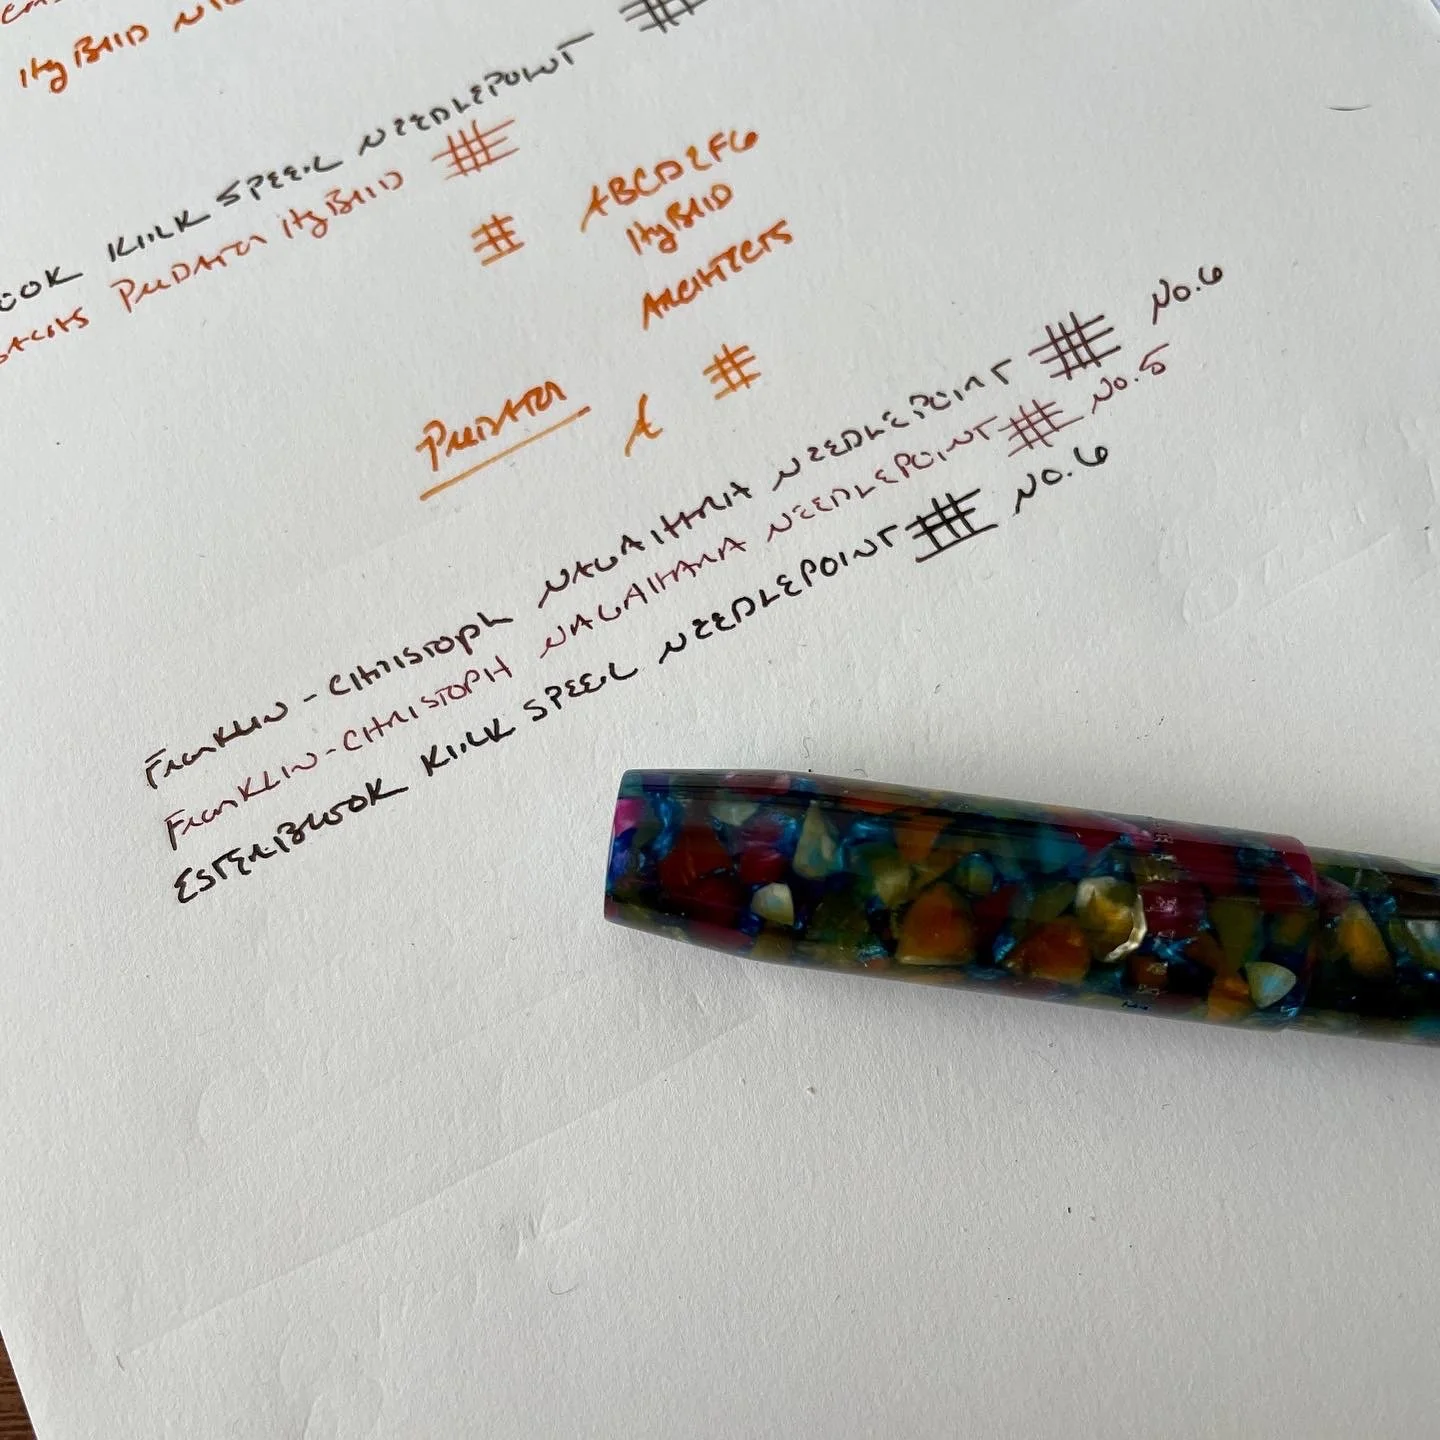 HYBRID
OOK KIRK SPEER NEEDLEPOINT
PREDATOR HYBRID
ABCDEFG
HYBRID
ARCHITECTS
PREDATOR A
FRANKLIN-CHRISTOPH NAGAHARA NEEDLEPOINT No. 6
FRANKLIN-CHRISTOPH NAGAHARA NEEDLEPOINT No. 5
ESTERBROOK KIRK SPEER NEEDLEPOINT No. 6